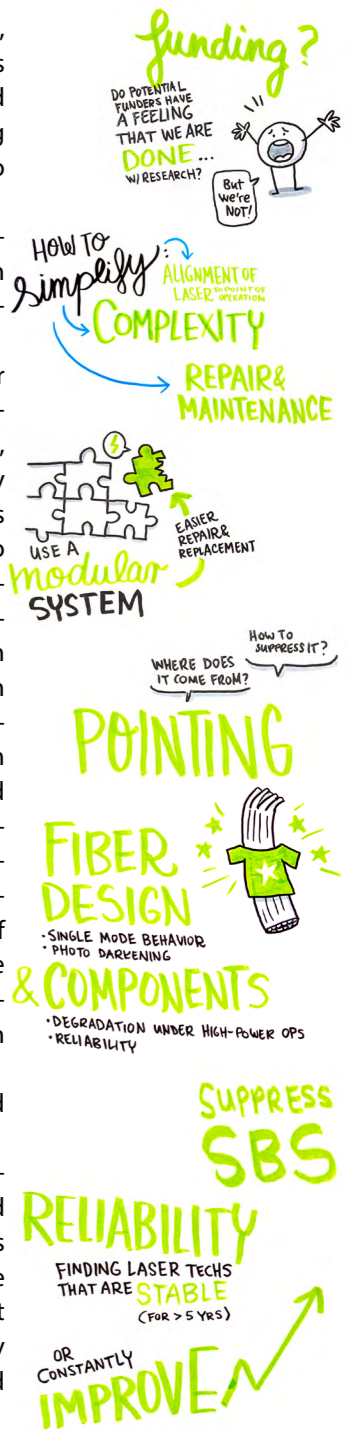 funding?
DO POTENTIAL
FUNDERS HAVE
A FEELING
THAT WE ARE
DONE...
W/ RESEARCH?
But
we're
NOT!
HOW TO
simplify:
ALIGNMENT OF
LASER TO POINT OF
OPERATION
COMPLEXITY
REPAIR &
MAINTENANCE
EASIER
REPAIR &
REPLACEMENT
USE A
modular
SYSTEM
HOW TO
SUPPRESS IT?
WHERE DOES
IT COME FROM?
POINTING
FIBER
DESIGN
• SINGLE MODE BEHAVIOR
• PHOTO DARKENING
& COMPONENTS
• DEGRADATION UNDER HIGH-POWER OPS
• RELIABILITY
SUPPRESS
SBS
RELIABILITY
FINDING LASER TECHS
THAT ARE STABLE
(FOR > 5 YRS)
OR
CONSTANTLY
IMPROVE